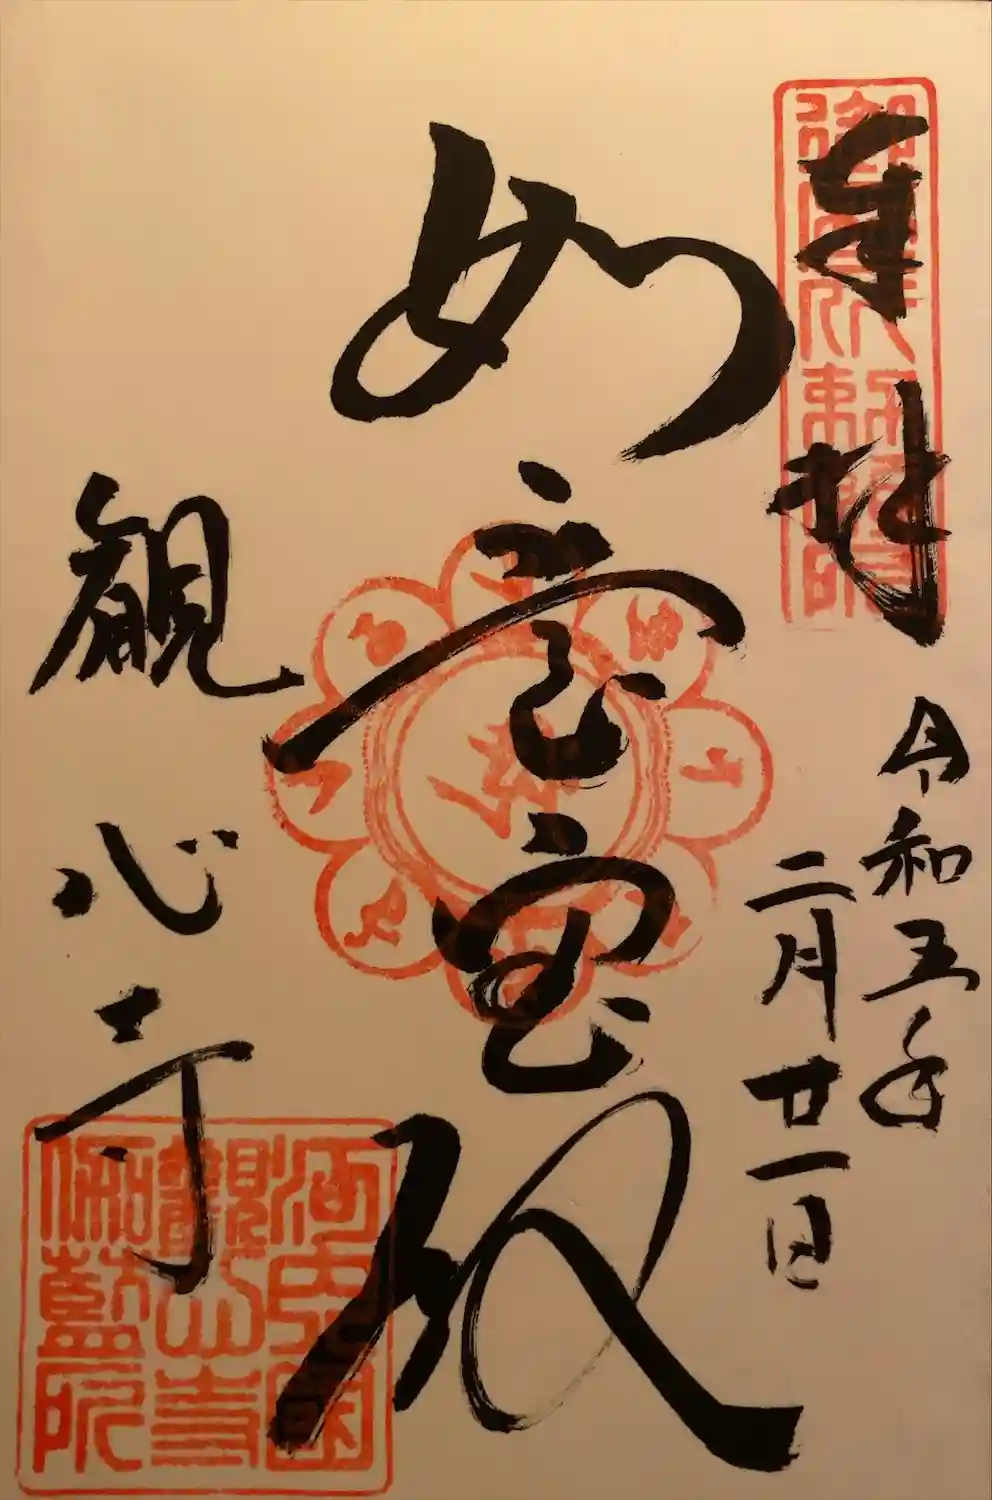 奉拝
令和五年
二月廿一日
如意宝殿
観心寺
河内国
観心寺
伽藍院